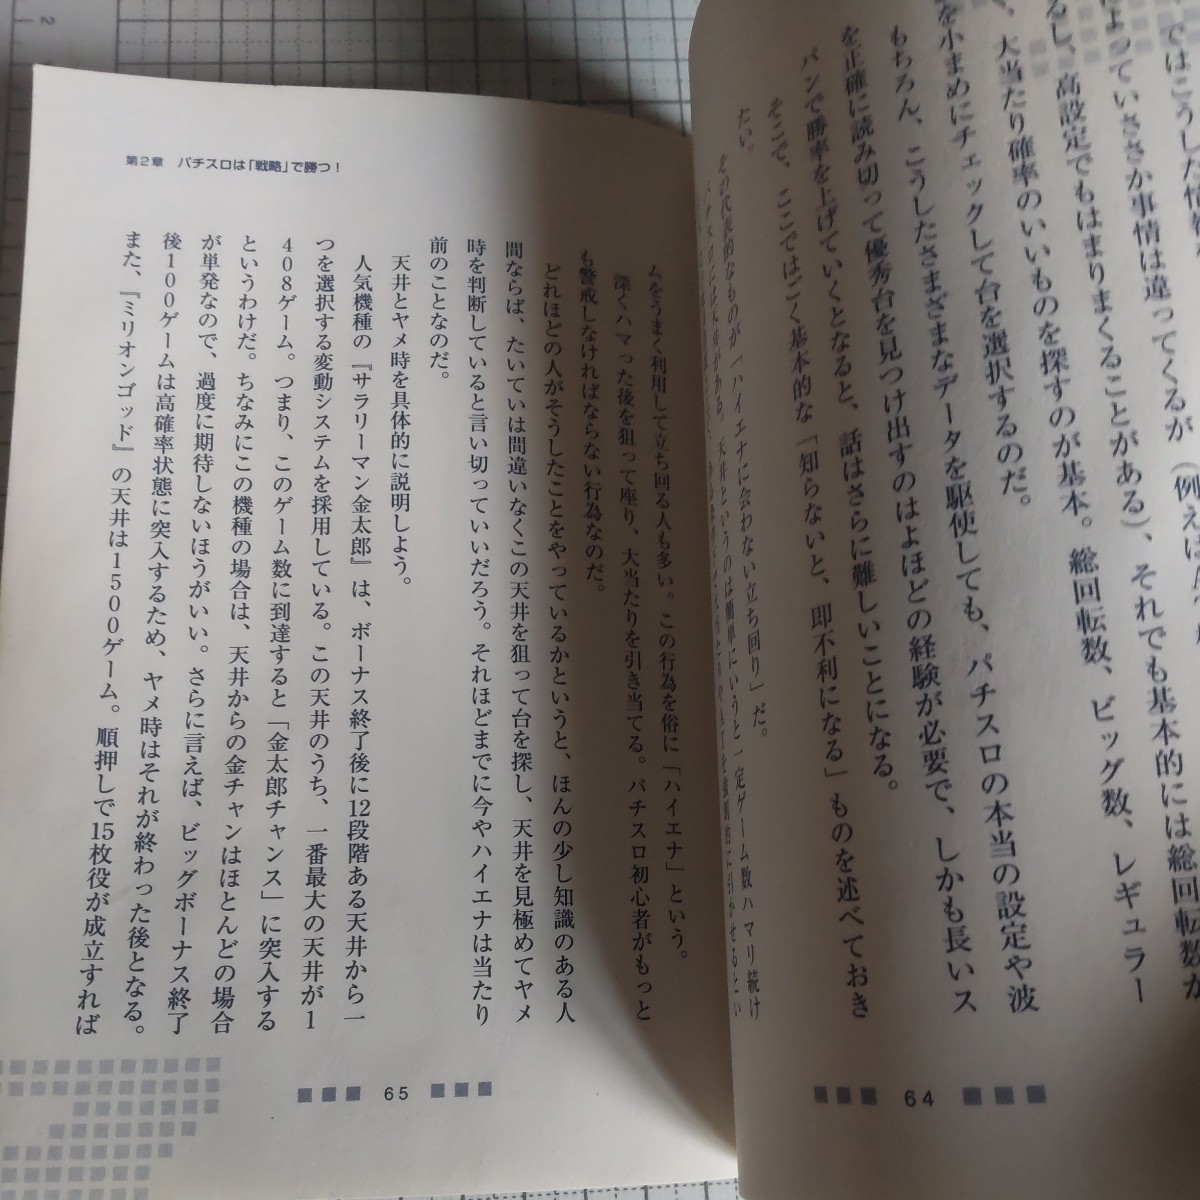 ではこうした情報
によっていささか事情は違ってくるが（例えば
るし、高設定でもはまりまくることがある）、それでも基本的には総回転数が
、大当たり確率のいいものを探すのが基本。総回転数、ビッグ数、レギュラー
を小まめにチェックして台を選択するのだ。
もちろん、こうしたさまざまなデータを駆使しても、パチスロの本当の設定や波
を正確に読み切って優秀台を見つけ出すのはよほどの経験が必要で、しかも長いス
パンで勝率を上げていくとなると、話はさらに難しいことになる。
そこで、ここではごく基本的な「知らないと、即不利になる」ものを述べておき
たい。
その代表的なものが「ハイエナに会わない立ち回り」だ。
パチスロには天井がある。天井というのは簡単にいうと一定ゲーム数ハマリ続け
を強制的に引かせるとい
64
第2章 パチスロは「戦略」で勝つ！
ムをうまく利用して立ち回る人も多い。この行為を俗に「ハイエナ」という。
深くハマった後を狙って座り、大当たりを引き当てる。パチスロ初心者がもっと
も警戒しなければならない行為なのだ。
どれほどの人がそうしたことをやっているかというと、ほんの少し知識のある人
間ならば、たいていは間違いなくこの天井を狙って台を探し、天井を見極めてヤメ
時を判断していると言い切っていいだろう。それほどまでに今やハイエナは当たり
前のことなのだ。
天井とヤメ時を具体的に説明しよう。
人気機種の『サラリーマン金太郎』は、ボーナス終了後に12段階ある天井から一
つを選択する変動システムを採用している。この天井のうち、一番最大の天井が1
408ゲーム。つまり、このゲーム数に到達すると「金太郎チャンス」に突入する
というわけだ。ちなみにこの機種の場合は、天井からの金チャンはほとんどの場合
が単発なので、過度に期待しないほうがいい。さらに言えば、ビッグボーナス終了
後100ゲームは高確率状態に突入するため、ヤメ時はそれが終わった後となる。
また、『ミリオンゴッド』の天井は1500ゲーム。順押しで15枚役が成立すれば
65